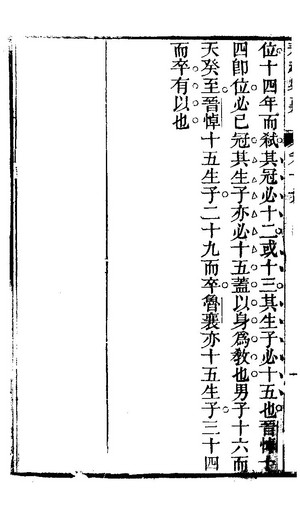 位十四年而弒其冠必十二或十三其生子必十五也晉悼十
四卽位必已冠其生子亦必十五蓋以身爲敎也男子十六而
天癸至晉悼十五生子二十九而卒魯襄亦十五生子三十四
而卒有以也